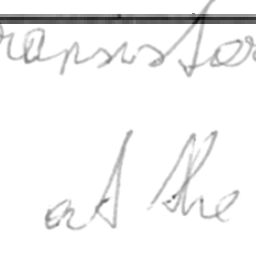 ransistor
at the